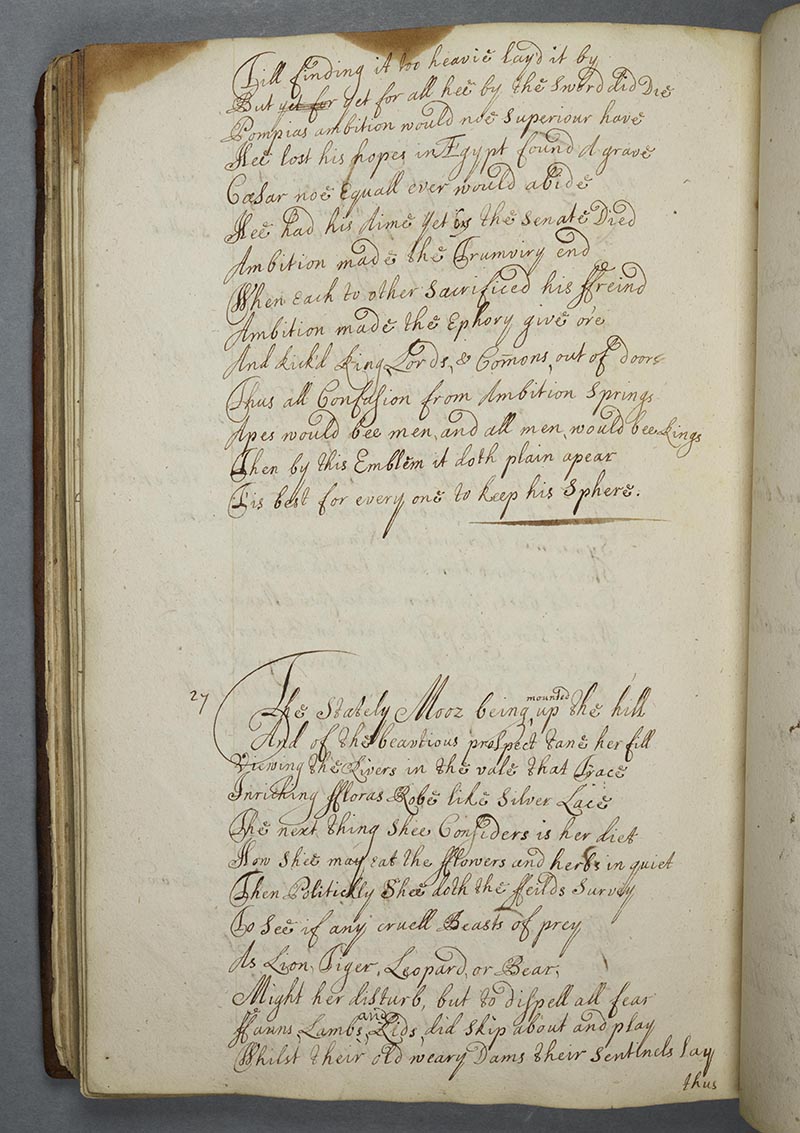 Till finding it too heavie lay'd it by
But yet for yet for all hee by the sword did Die
Pompias ambition would noe Superiour have
Hee lost his hopes in Egypt found A grave
Cæsar noe Equall ever would abide
Hee had his time yet by the Senate Died
Ambition made the Trumviry end
When each to other Sacrificed his ffreind
Ambition made the Ephory give ore
And kick'd King, Lords, & Com̄ons, out of doors
Thus all Confusion from Ambition Springs
Apes would bee men, and all men, would bee Kings
Then by this Emblem it doth plain apear
T'is best for every one to keep his Sphere.
27
The Stately Mooz being mounted up the hill
And of the beautious prospect tane her fill
Viewing the Rivers in the vale that Trace
Inriching ffloras Robe like Silver Lace
The next thing Shee Considers is her diet
How Shee may eat the fflowers and herbs in quiet
Then Politickly Shee doth the ffeilds Survey
To See if any cruell Beasts of prey
As Lion, Tiger, Leopard, or Bear,
Might her disturb, but to dispell all fear
ffauns, Lambs, and Kids, did skip about and play
Whilst their old weary Dams their Sentinels lay
thus